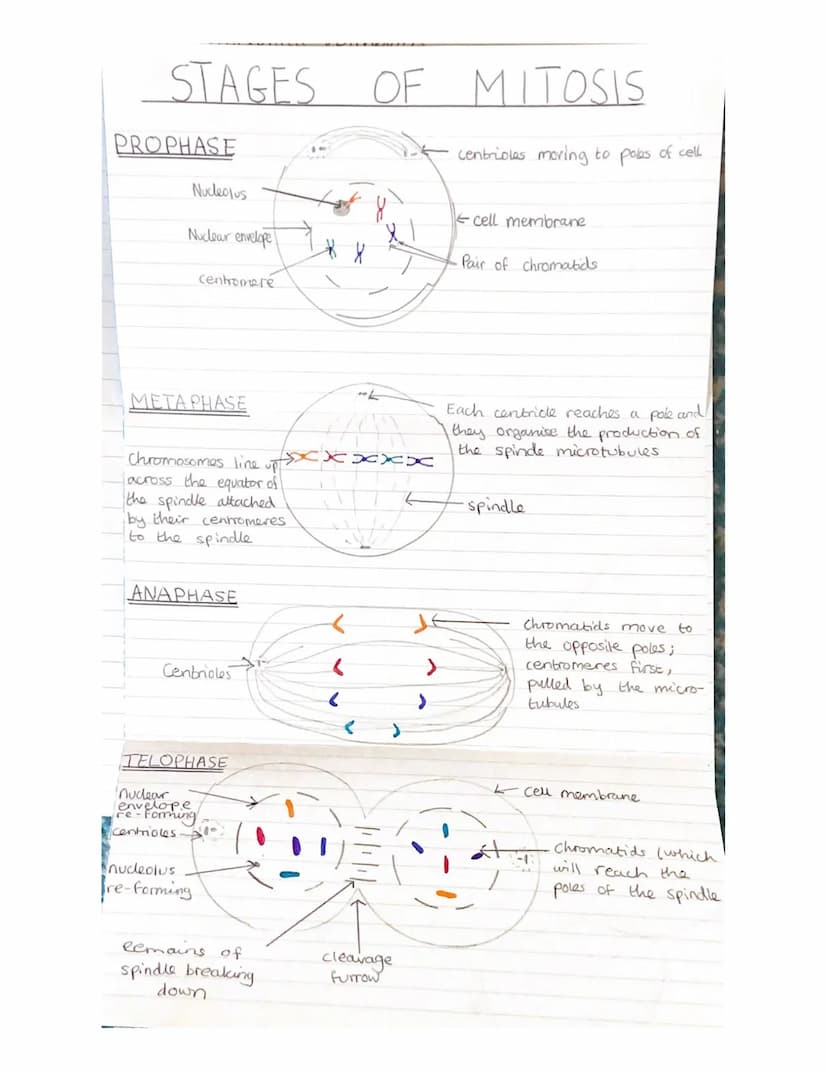 STAGES OF MITOSIS
PROPHASE
centrioles moving to poles of cell
Nucleolus
Nuclear envelope
cell membrane
Pair of chromatids
centromere
METAPHASE
Each centriole reaches a pole and
they organise the production of
the spindle microtubules
Chromosomes line up
across the equator of
the spindle attached
by their centromeres
to the spindle
spindle
ANAPHASE
Chromatids move to
the opposite poles;
centromeres first,
pulled by the micro-
tubules
Centrioles
TELOPHASE
nuclear
envelope
re-forming
centrioles
nucleolus
re-forming
cell membrane
Chromatids (which
will reach the
poles of the spindle
Remains of
spindle breaking
down
cleavage
furrow